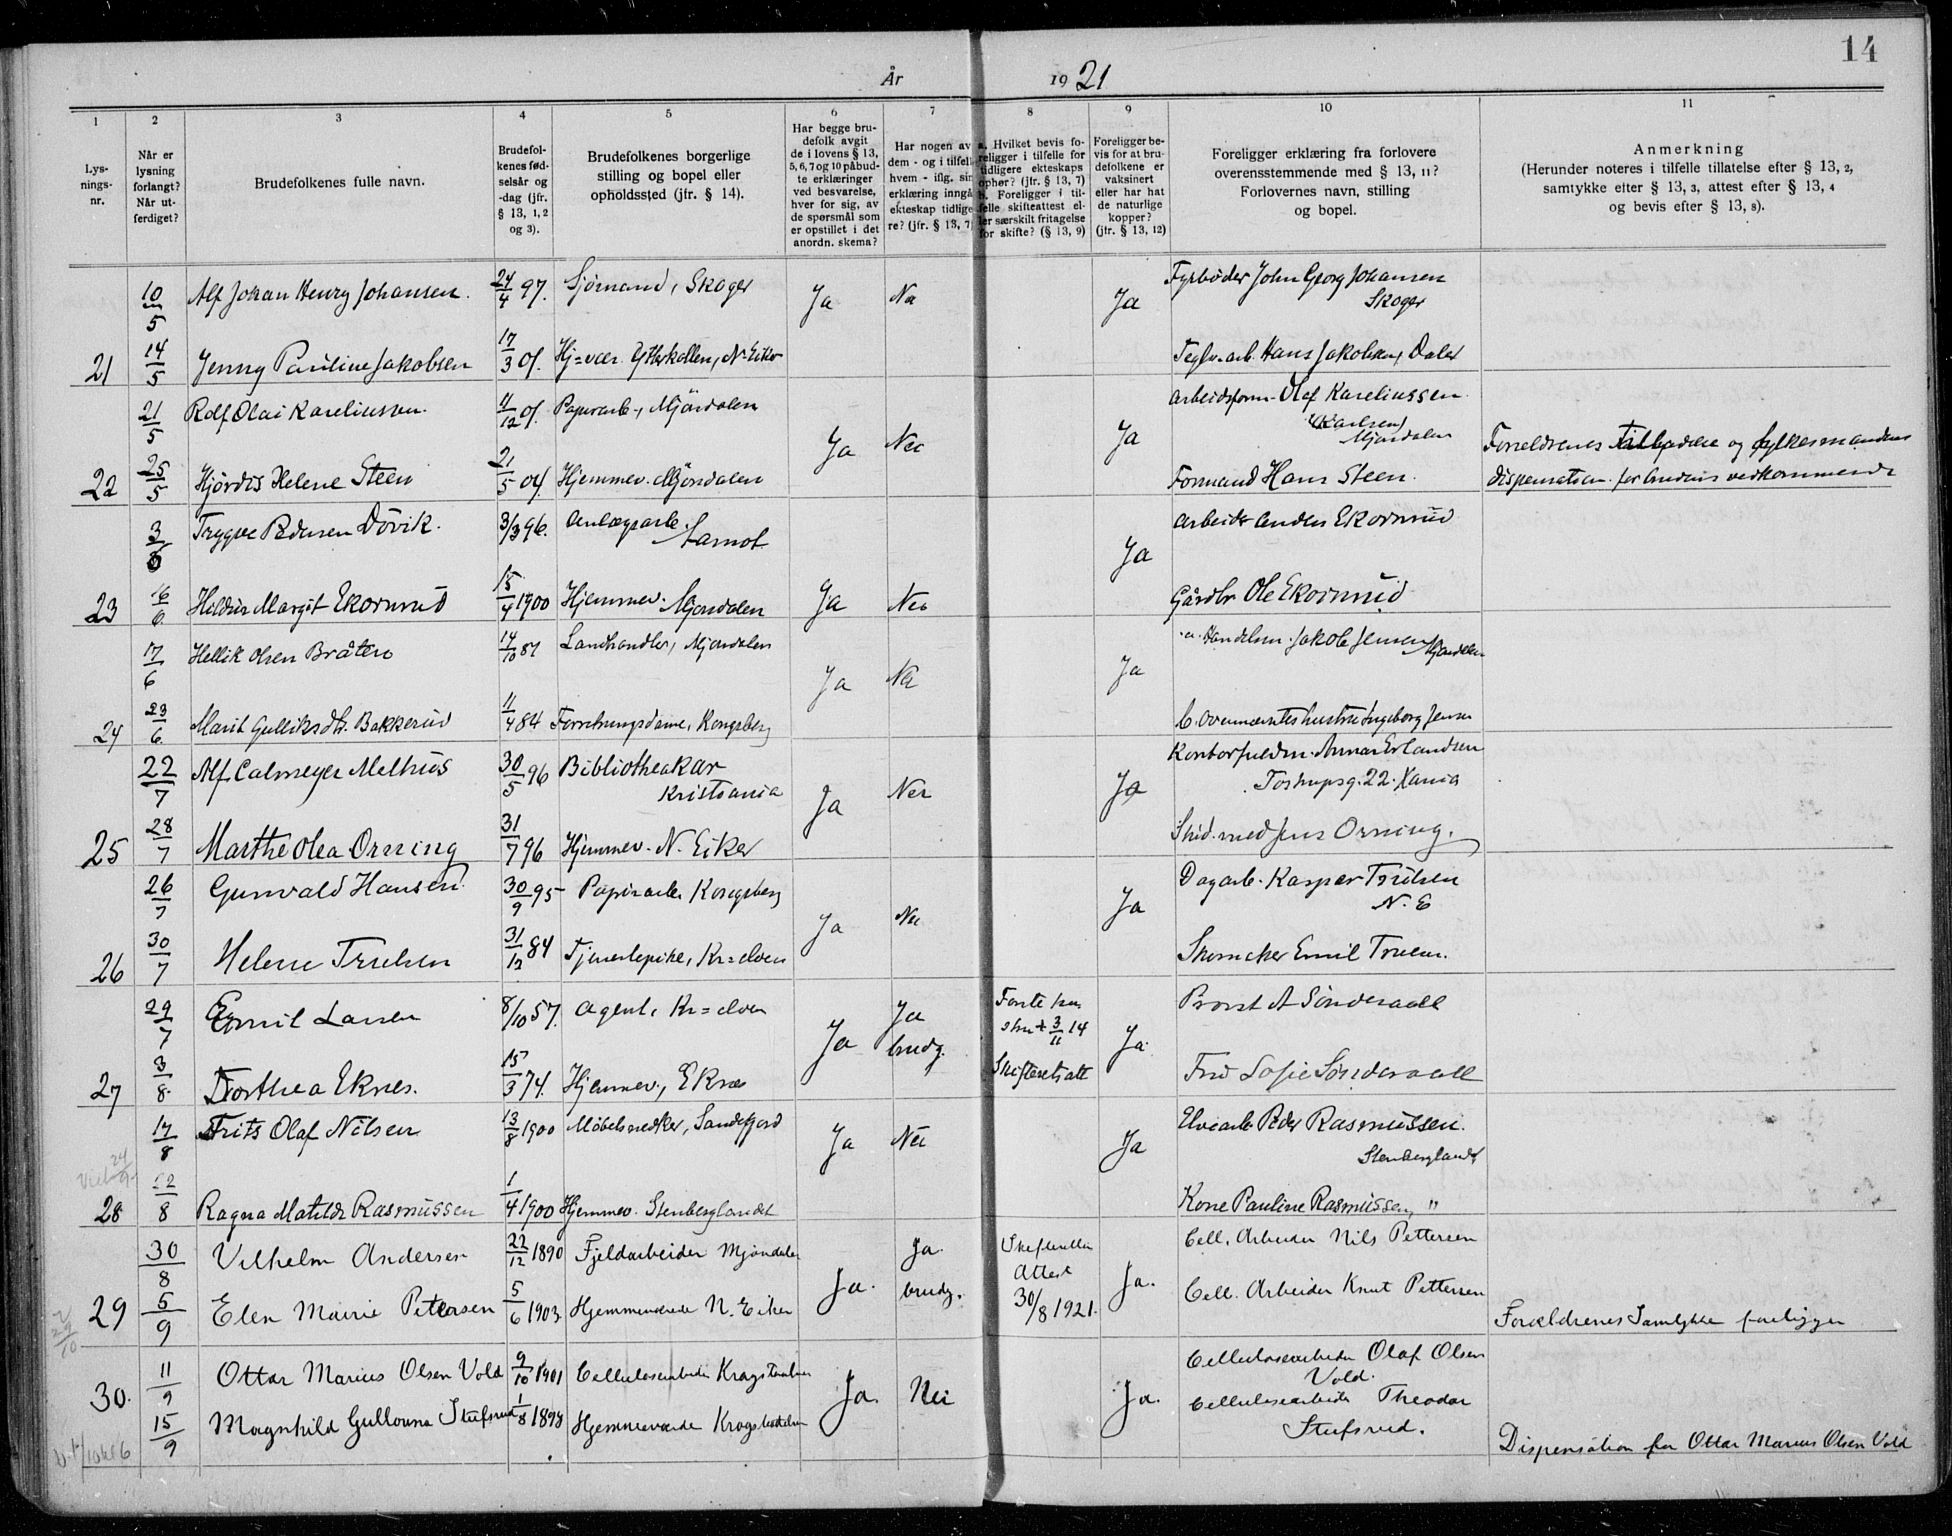 14
År 1921
1 2 3 4 5 6 7 8 9 10 11
Lys-
nings-
nr.
Når er
lysning
forlangt?
Når ut-
ferdiget?
Brudefolkenes fulle navn.
Brudefol-
kenes fød-
selsår og
-dag (jfr.
§ 13, 1, 2
og 3).
Brudefolkenes borgerlige
stilling og bopel eller
opholdssted (jfr. § 14).
Har begge bru-
defolk avgit
de i lovens § 13,
5, 6, 7 og 10 påbud-
te erklæringer
ved besvarelse,
hver for sig, av
de spørsmål som
er opstillet i det
anordn. skema?
Har nogen av
dem - og i tilfelle
hvem - iflg. sin
erklæring inngå
ekteskap tidlige
re? (jfr. § 13, 7)
a. Hvilket bevis fo-
religger i tilfelle for
tidligere ekteskaps
ophør? (jfr. § 13, 7)
b. Foreligger i til-
felle skifteattest el-
ler særskilt fritagelse
for skifte? (§ 13, 9)
Foreligger be-
vis for at bru-
defolkene er
vaksinert
eller har hat
de naturlige
kopper?
(jfr. § 13, 12)
Foreligger erklæring fra forlovere
overensstemmende med § 13, 11?
Forlovernes navn, stilling
og bopel.
Anmerkning
(Herunder noteres i tilfelle tillatelse efter § 13, 2,
samtykke efter § 13, 3, attest efter § 13, 4
og bevis efter § 13, 8).
10/5 Alf Johan Henry Johansen. 24/4 97. Sjømand, Skoger Ja Nei Ja Fyrbøder John Georg Johansen
Skoger
21 14/5 Jenny Pauline Jakobsen 17/3 01. Hj=vær. Ytterkollen, N. Eiker Teglv.arb. Hans Jakobsen, Daler
21/5 Rolf Olai Kareliussen. 11/12 01. Papirarb., Mjøndalen Ja Nei Ja Arbeidsform. Olaf Kareliussen
(Karlsen)
Mjøndalen
22 25/5 Hjørdis Helene Steen 21/5 04. Hjemmev. Mjøndalen Formand Hans Steen.
Forældrenes Tilladelse og fylkesmandens
dispensation for brudens vedkommende
3/6 Trygve Pedersen Døvik. 3/3 96. Anlægsarb. Åamot Ja Arbeider Anders Ekornrud
23 16/6 Hildur Margit Ekornrud 15/4 1900 Hjemmev. Mjøndalen Ja Nei Gårdbr. Ole Ekornrud
17/6 Hellik Olsen Bråten 14/10 87 Landhandler, Mjøndalen Ja Nei Ja a. Handelsm. Jakob Jensen, Mjøndalen
24 23/6 Marit Gulliksdtr. Bakkerud 11/4 84 Forretningsdame, Kongsberg b. Ovennævntes hustru Ingeborg Jensen
22/7 Alf Calmeyer Melhus 30/5 96 Bibliothekar
Kristiania Ja Nei Ja Kontorfuldm. Annar Erlandsen
Tostrupsg. 22. Xania
25 28/7 Marthe Olea Orning 31/7 96 Hjemmev. N. Eiker Jens Orning.
26/7 Gunvald Hansen. 30/9 95 Papirarb. Kongsberg Ja Nei Ja Dagarb. Kasper Trulsen
N. E
26 30/7 Helene Trulsen 31/12 84 Tjenestepike, Kr=elven Skomaker Emil Truls.
29/7 Emil Larsen 8/10 57. Agent, Kr=elven Ja Ja
brudg. Forste hu-
stru + 3/11 14
Skifteretsatt Ja Provst A Sønderaall
27 3/8 Dorthea Eknes. 15/3 74. Hjemmev., Eknes Fru Sofie Sønderaall
17/8 Frits Olaf Nilsen 13/8 1900 Møbelsnedker, Sandefjord Ja Nei Ja Elvearb. Peder Rasmussen.
Stenberglandet
28 22/8 Ragna Matilde Rasmussen 1/4 1900 Hjemmev. Stenberglandet Kone Pauline Rasmussen, "
30/8 Vilhelm Andersen 22/12 1890 Fjeldarbeider Mjøndalen Ja. Ja.
brudg. Skifteretten
Attest
30/8 1921. Ja. Cell. Arbeider Nils Pettersen
29 5/9 Elen Marie Pettersen 5/6 1903. Hjemmeværende N. Eiker Cell. Arbeider Knut Pettersen
Forældrenes Samtykke foreligger
30. 11/9 Ottar Marius Olsen Vold 9/10 1901 Cellulosearbeider Kragstadelven Ja. Nei Ja. Cellulosearbeider Olaf Olsen
Vold.
15/9 Magnhild Gullouna Stufsrud 1/8 1898 Hjemmeværende Kragstadelven Cellulosearbeider Theodor
Stufsrud.
Dispensation for Ottar Marius Olsen Vold